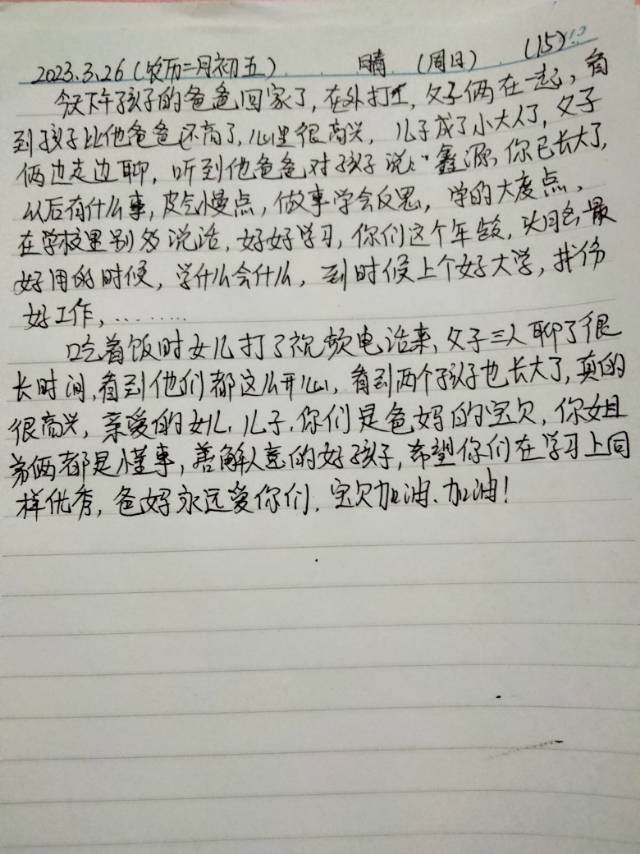 2023.3.26(农历二月初五) 晴 (周日) (15)
今天下午孩子的爸爸回家了,在外打工,父子俩在一起,看
到孩子比他爸爸还高了,心里很高兴,儿子成了小大人了,父子
俩边走边聊,听到他爸爸对孩子说:“鑫源,你已长大了,
以后有什么事,脾气慢点,做事学会反思,学的大度点,
在学校里别多说话,好好学习,你们这个年龄,头脑最
好用的时候,学什么会什么,到时候上个好大学,找份
好工作,………
吃着饭时女儿打了视频电话来,父子三人聊了很
长时间,看到他们都这么开心,看到两个孩子也长大了,真的
很高兴,亲爱的女儿、儿子,你们是爸妈的宝贝,你姐
弟俩都是懂事,善解人意的好孩子,希望你们在学习上同
样优秀,爸妈永远爱你们,宝贝加油、加油!